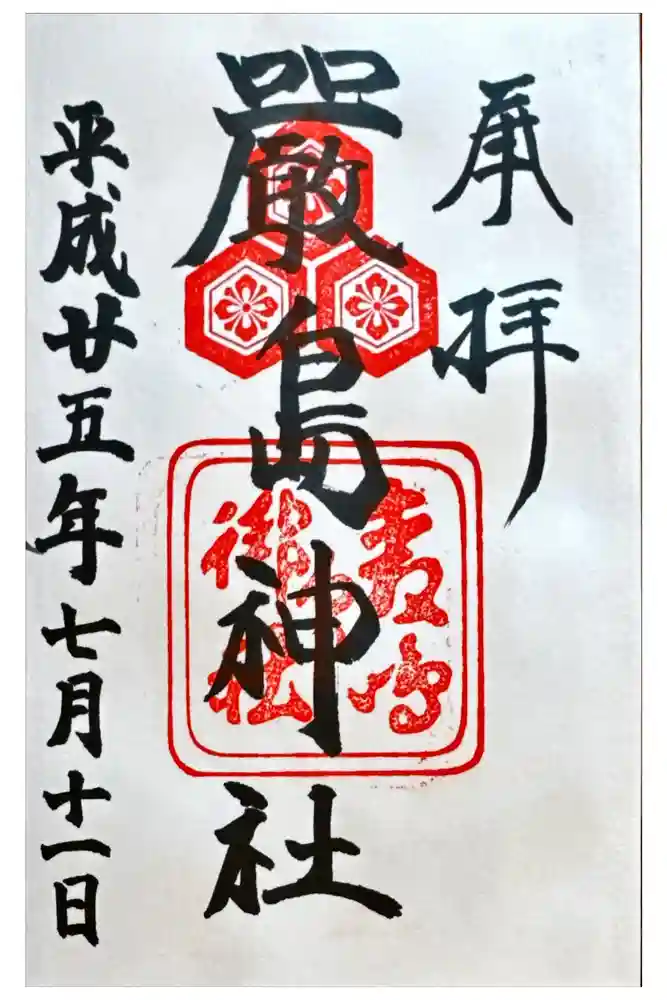 奉拝
嚴島神社
平成廿五年七月十一日